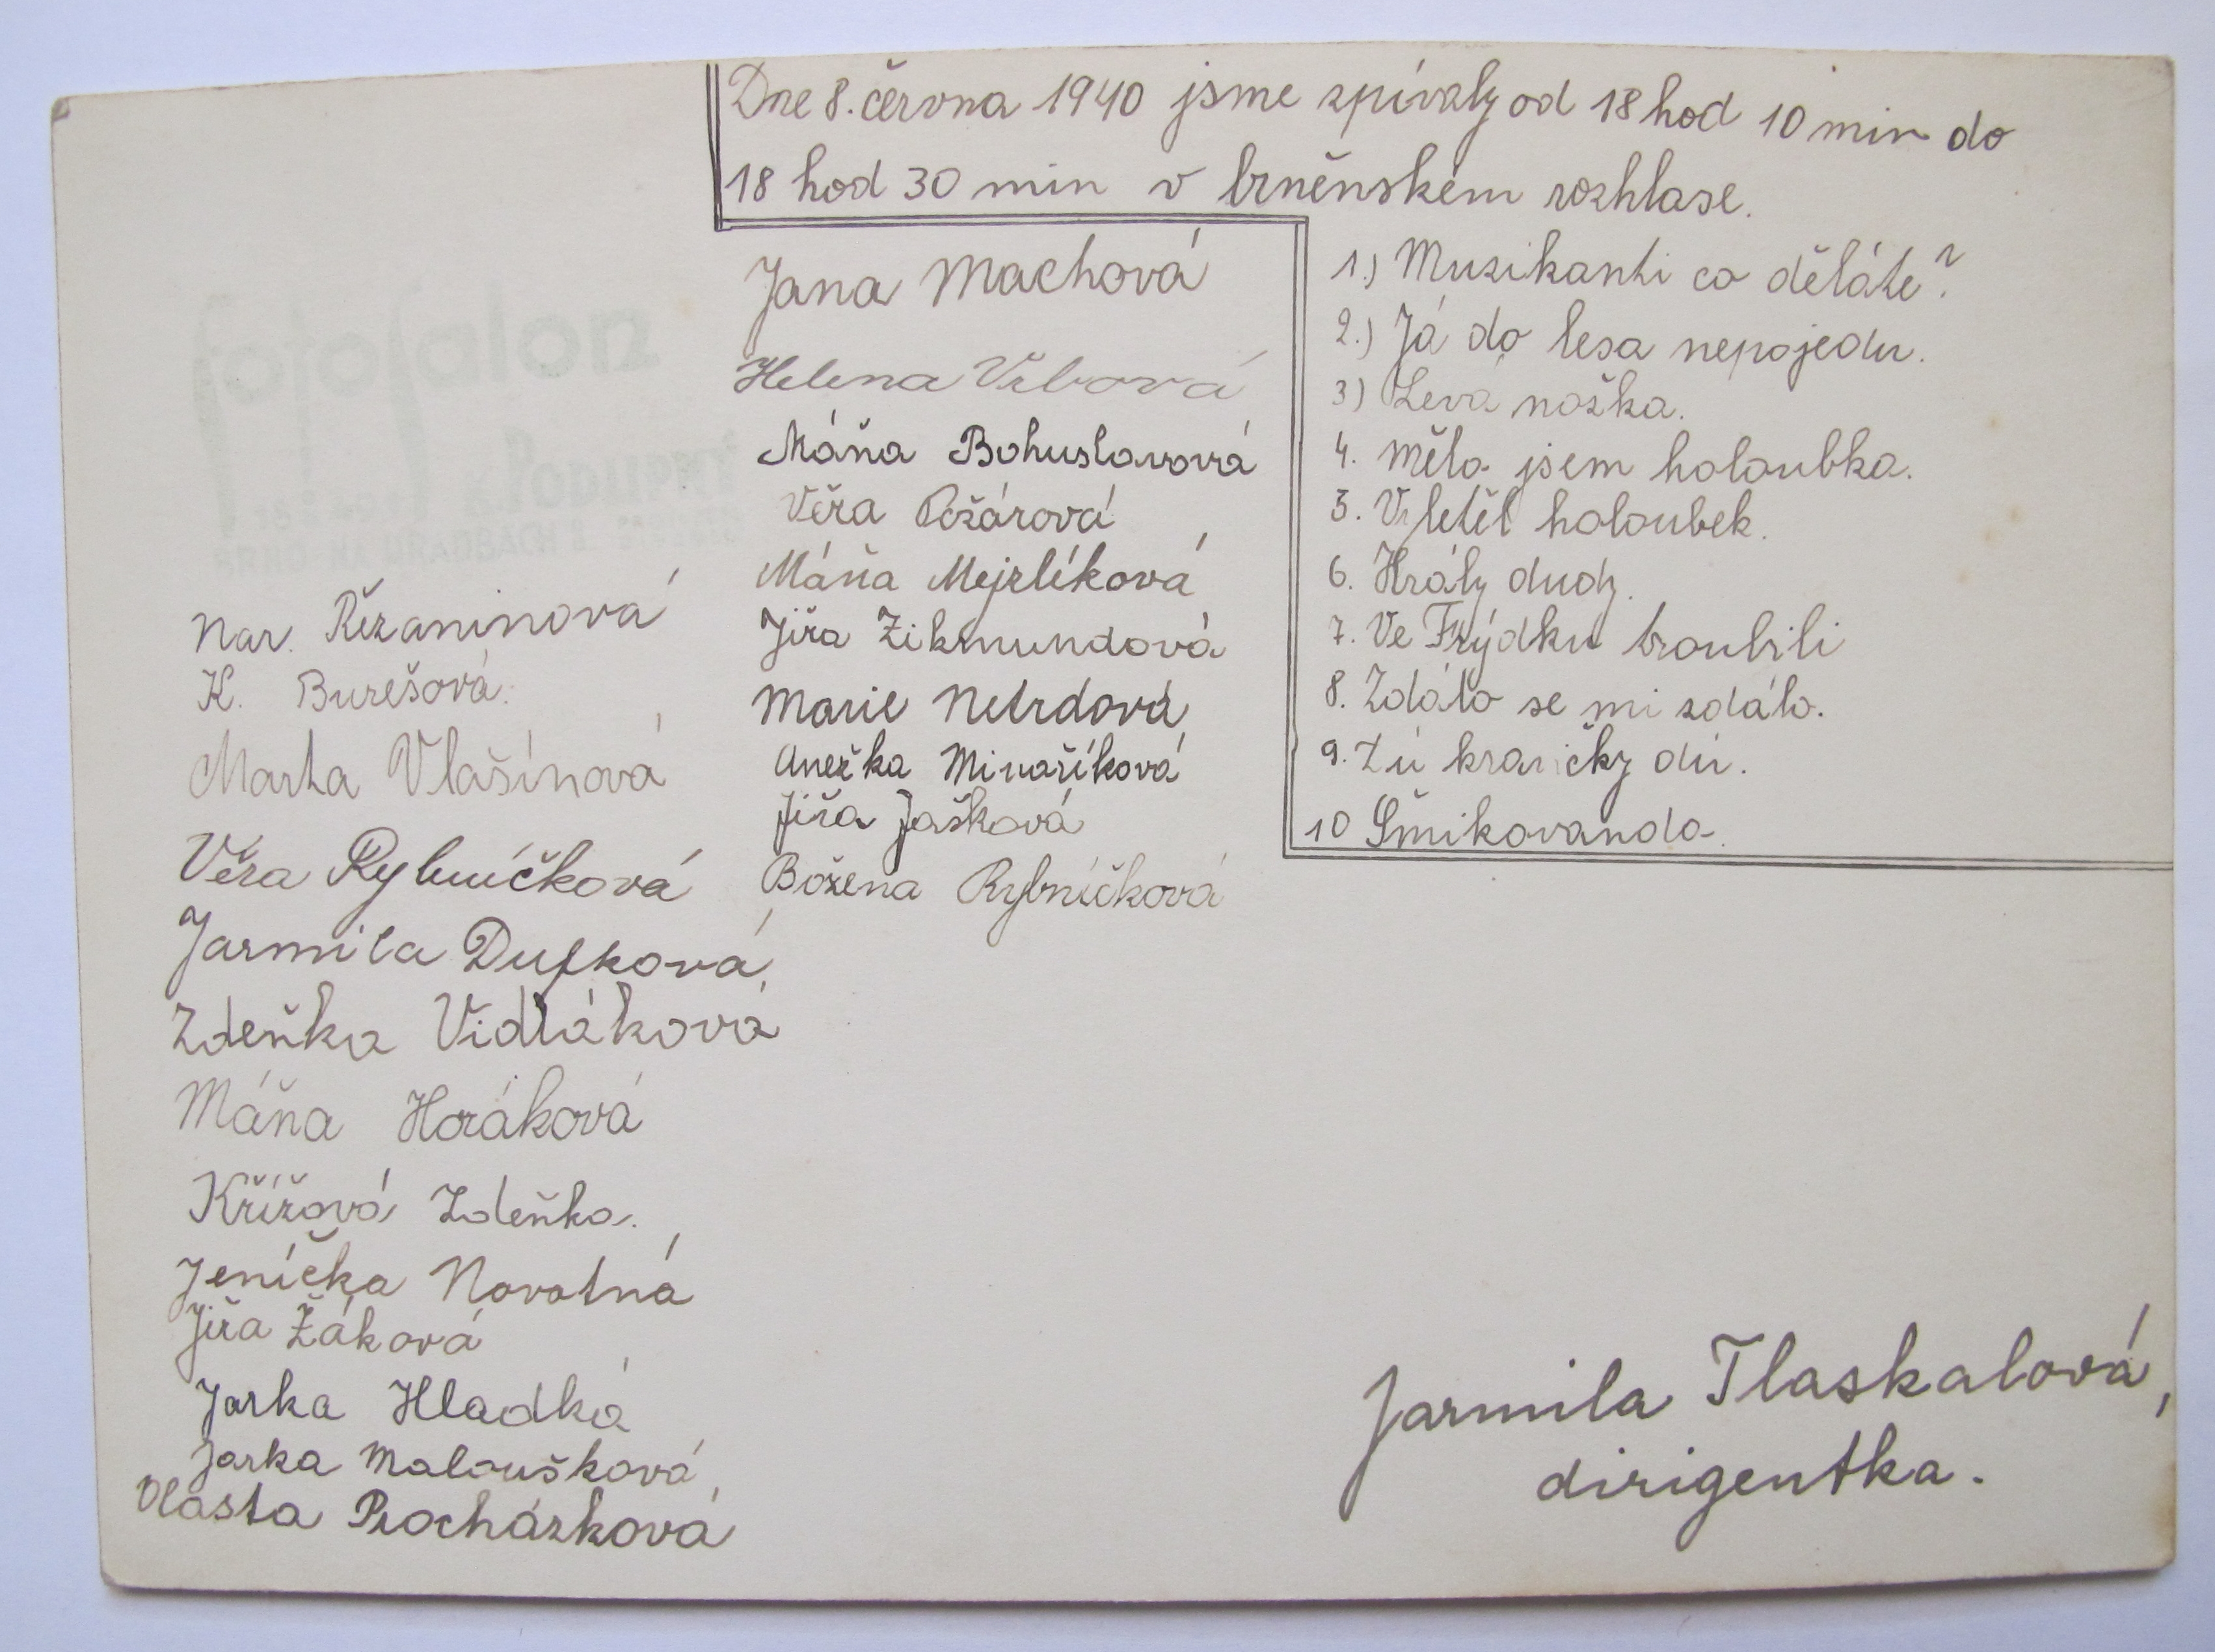 Dne 8. června 1940 jsme zpívaly od 18 hod 10 min do
18 hod 30 min v brněnském rozhlase.
1.) Muzikanti co děláte?
2.) Já do lesa nepojedu.
3) Levá nožka.
4. Měla jsem holoubka.
5. Vyletěl holoubek.
6. Hrály dudy.
7. Ve Frýdku troubili
8. Zdálo se mi zdálo.
9. Žú kravičky dú.
10 Šmikovanda.
Jana Machová
Helena Vrbová
Máňa Bohuslavová
Věra Požárová
Máňa Mejzlíková
Jiřa Zikmundová
Marie Netrdová
Anežka Minaříková
Jiřa Jašková
Božena Rybníčková
fotosalon
PODLIPNÝ
BRNO NA HRADBÁCH 8
Nar. Řezaninová
K. Burešová.
Marta Vlašínová
Věra Rybníčková
Jarmila Dufková
Zdeňka Vidláková
Máňa Horáková
Křížová Zdeňka.
Jenička Novotná
Jiřa Žáková
Jarka Hladká
Jarka Maloušková
Vlasta Procházková
Jarmila Tlaskalová,
dirigentka.